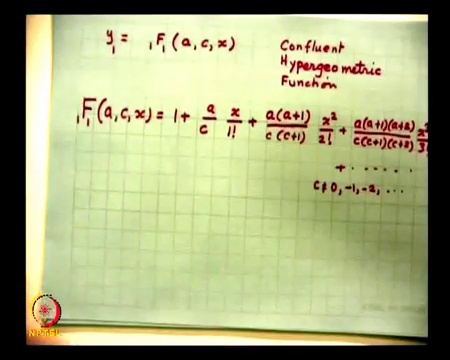 y₁ = ₁F₁ (a, c, x)
Confluent
Hypergeometric
Function
₁F₁ (a, c, x) = 1 + a/c x/1! + a(a+1)/c(c+1) x²/2! + a(a+1)(a+2)/c(c+1)(c+2) x³/3!
+ ......
c ≠ 0, -1, -2, ...
NPTEL